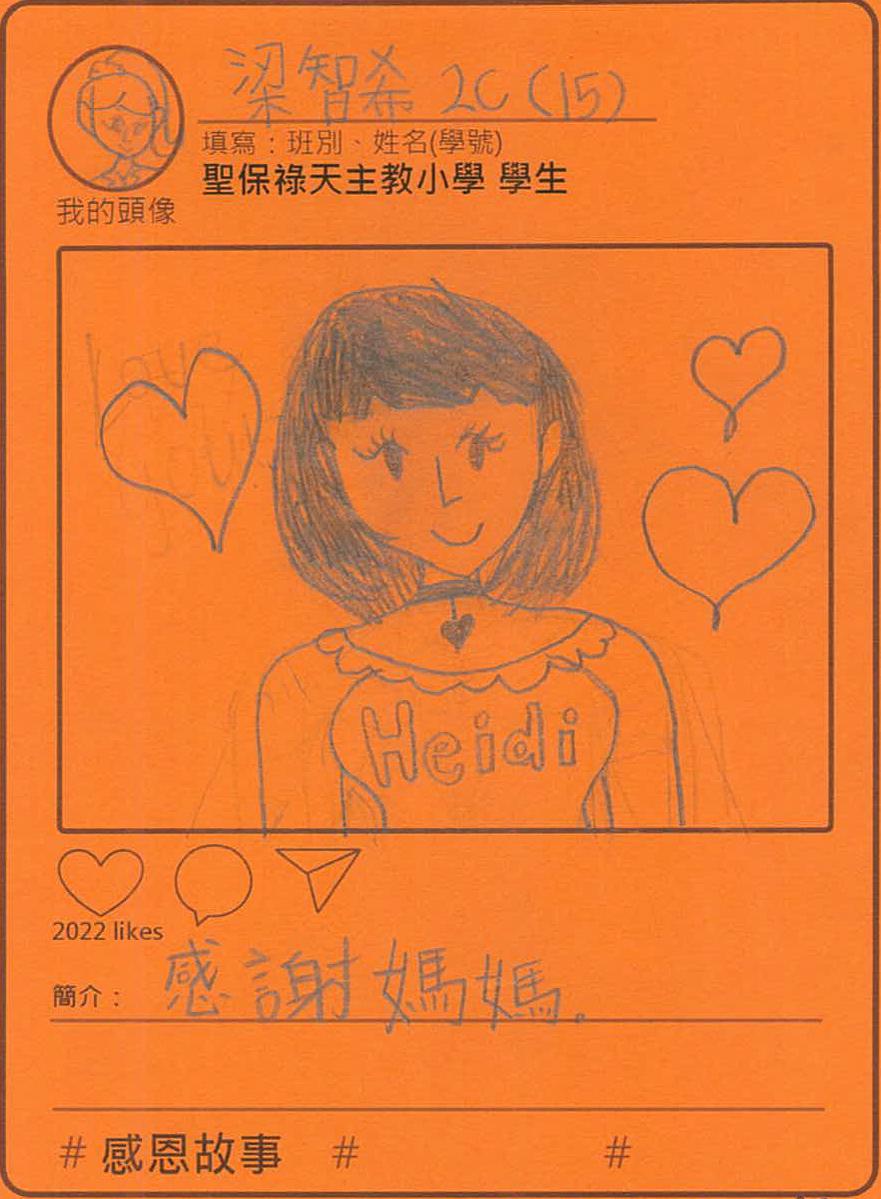 梁智希 2C (15)
填寫：班別、姓名(學號)
聖保祿天主教小學 學生
我的頭像
Heidi
2022 likes
簡介： 感謝媽媽。
# 感恩故事 # #